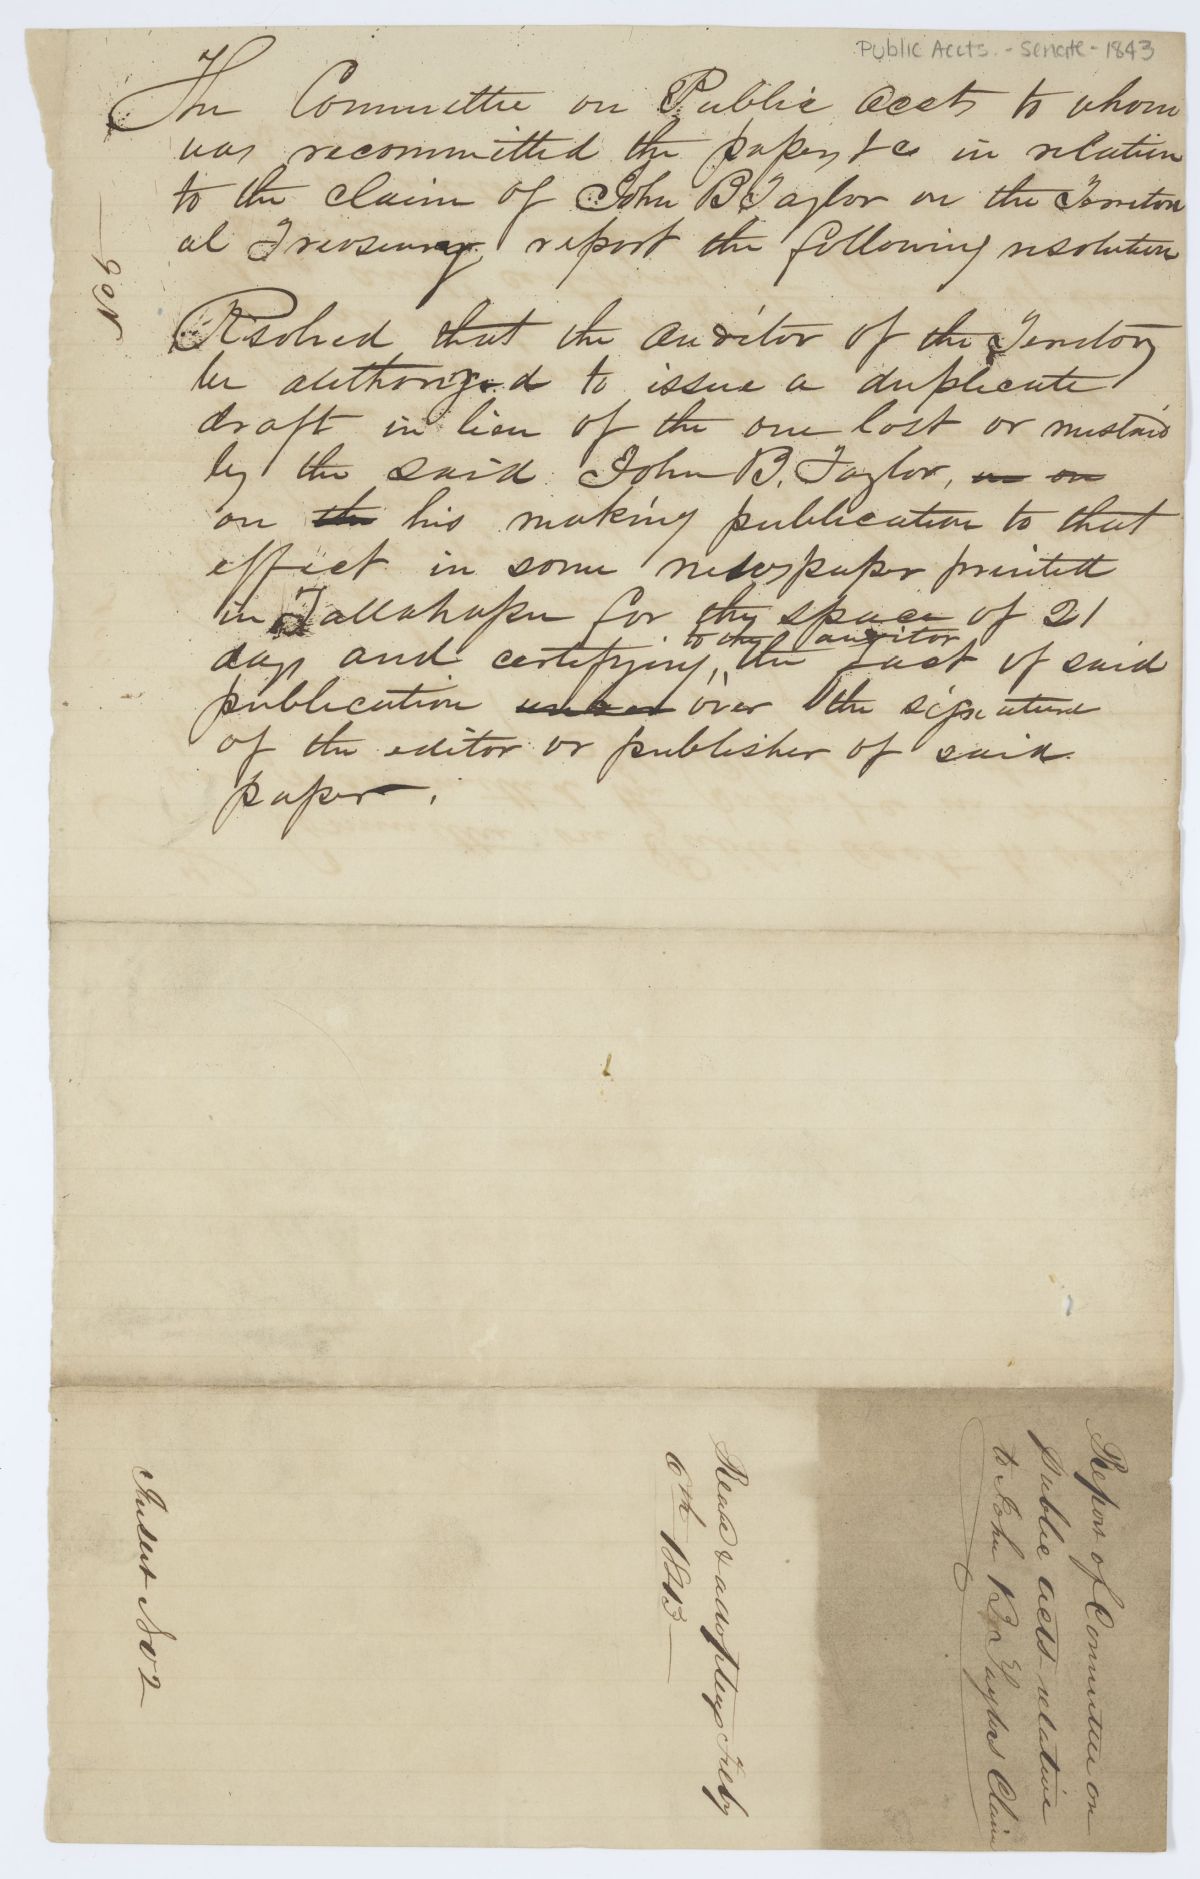 Public Accts. - Senate - 1843
The Committee on Public Accts to whom
was recommitted the papers &c in relation
to the claim of John B. Taylor on the Territori
al Treasury report the following resolution
Resolved that the Auditor of the Territory
be authorized to issue a duplicate
draft in lieu of the one lost or mislaid
by the said John B. Taylor, on
on the his making publication to that
effect in some newspaper printed
in Tallahassee for the space of 21
to the auditor
days and certifying the fact of said
publication under over the signature
of the editor or publisher of said
paper.
Report of Committee on
public accts relative
to John B. Taylors Claim
Read & adopted Feby
6th 1843
Insert No 2